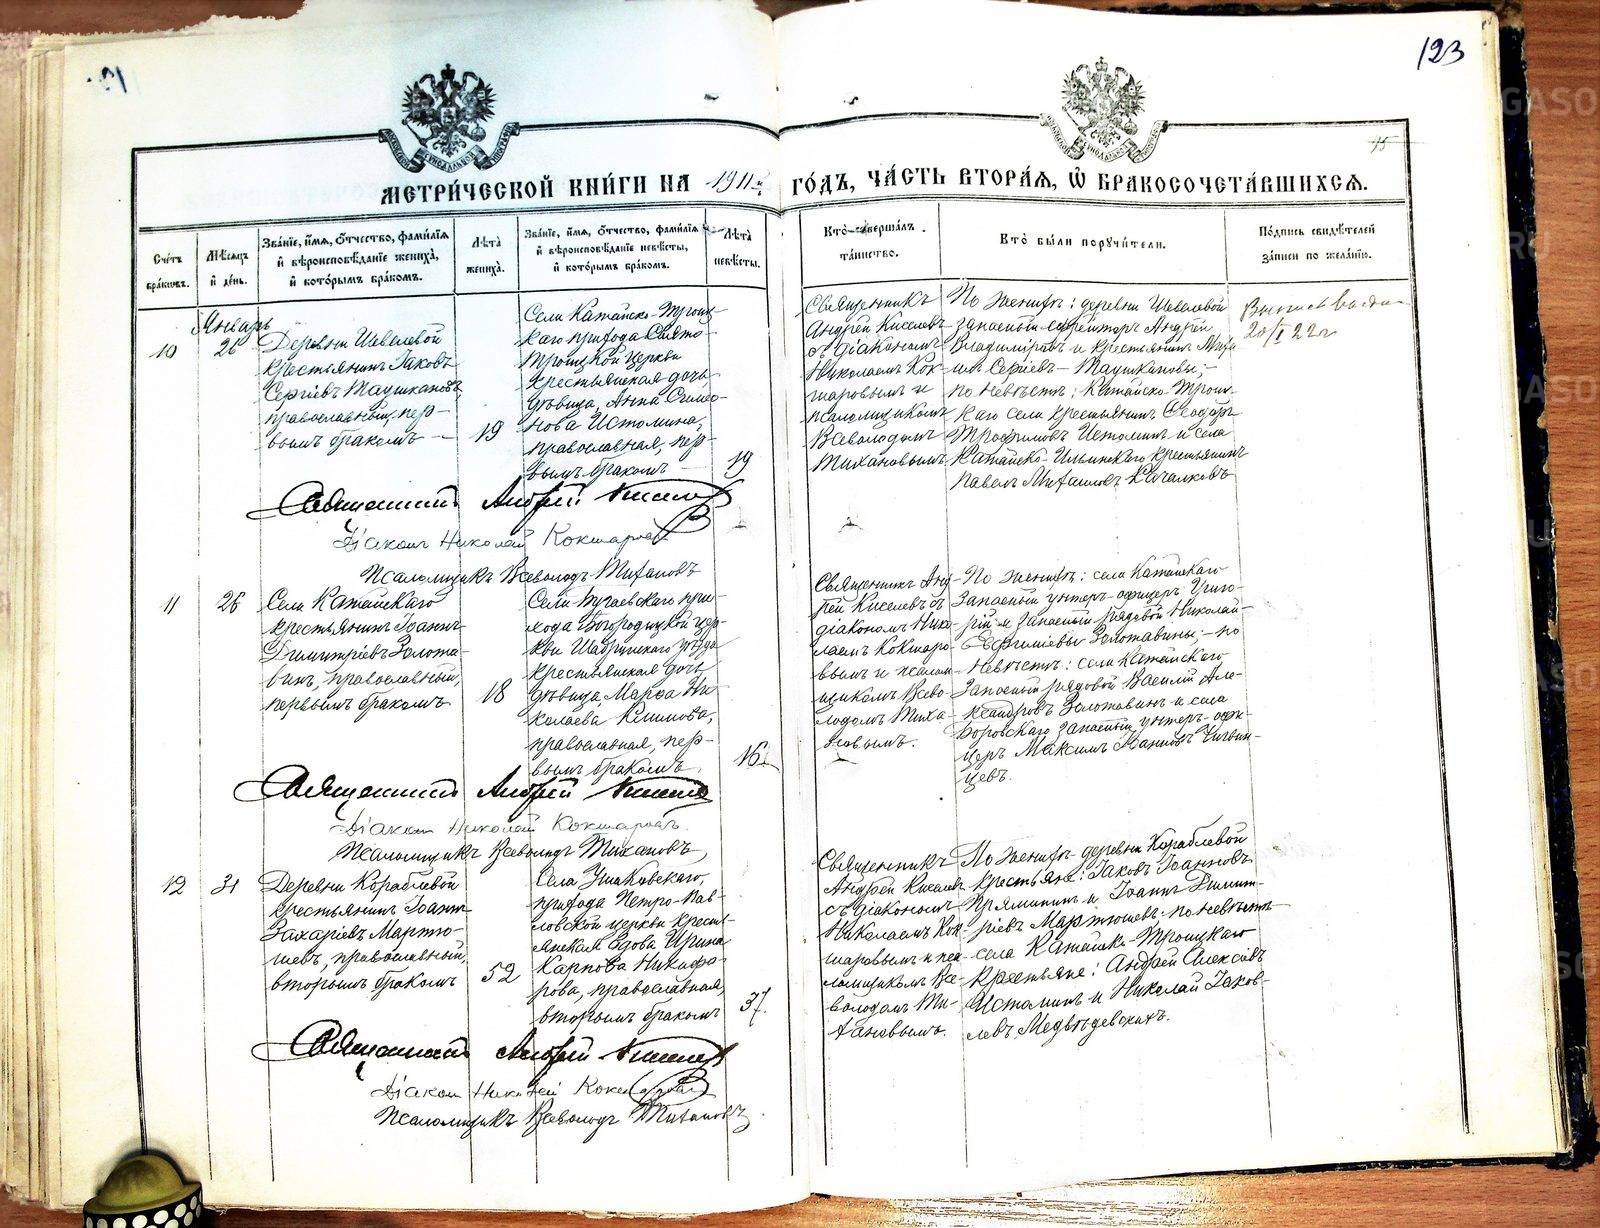 123
45
МЕТРИ́ЧЕСКОЙ КНИ́ГИ НА 1911й ГО́ДЪ, ЧА́СТЬ ВТОРА́Я, Ѡ БРАКОСОЧЕТА́ВШИХСЯ.
Сче́тъ
бра́ковъ.
Мѣ́сяцъ
и де́нь.
Зва́нїе, и́мя, о́тчество, фами́лїя
и҆ вѣроисповѣ́данїе жениха̀,
и҆ кото́рымъ бра́комъ.
Лѣ́та
жениха̀.
Зва́нїе, и́мя, о́тчество, фами́лїя
и҆ вѣроисповѣ́данїе невѣ́сты,
и҆ кото́рымъ бра́комъ.
Лѣ́та
невѣ́сты.
Кто̀ соверша́лъ
та́инство.
Кто̀ бы́ли поручи́тели.
По́дпись свидѣ́телей
за́писи по жела́нїю.
10
Январь
26
Деревни Шевелевой
крестьянинъ Іаковъ
Сергіевъ Таушкановъ,
православный, пер-
вымъ бракомъ
19
Села Катайско-Троиц-
каго прихода Свято-
Троицкой церкви
крестьянская дочь,
дѣвица, Анна Симео-
нова Истомина,
православная, пер-
вымъ бракомъ
19
Священникъ
Андрей Киселевъ
съ діакономъ
Николаемъ Кок-
шаровымъ и
псаломщикомъ
Всеволодомъ
Тихановымъ
По женихѣ: деревни Шевелевой
запасный ефрейторъ Андрей
Владиміровъ и крестьянинъ Миха-
илъ Сергіевъ Таушкановы;
по невѣстѣ: Катайско-Троиц-
каго села крестьянинъ Ѳеодоръ
Трофимовъ Истоминъ и села
Катайско-Ильинскаго крестьянинъ
Павелъ Михаиловъ Качалковъ
20/I 22 г
Священникъ Андрей Киселевъ
Діаконъ Николай Кокшаровъ
Псаломщикъ Всеволодъ Тихановъ
11
26
Села Катайскаго
крестьянинъ Іоаннъ
Димитріевъ Золота-
винъ, православный,
первымъ бракомъ
18
Села Бугаевскаго при-
хода Богородицкой цер-
кви Шадринскаго уѣзда
крестьянская дочь
дѣвица, Марѳа Ни-
колаева Климова,
православная, пер-
вымъ бракомъ
16
Священникъ Анд-
рей Киселевъ съ
діакономъ Нико-
лаемъ Кокшаро-
вымъ и псалом-
щикомъ Всево-
лодомъ Тиха-
новымъ.
По женихѣ: села Катайскаго
запасный унтеръ-офицеръ Григо-
рій и запасный рядовой Николай
Евфиміевы Золотавины; по
невѣстѣ: села Катайскаго
запасный рядовой Василій Але-
ксандровъ Золотавинъ и села
Боровскаго запасный унтеръ-офи-
церъ Максимъ
цевъ.
Священникъ Андрей Киселевъ
Діаконъ Николай Кокшаровъ.
Псаломщикъ Всеволодъ Тихановъ
12
31
Деревни Кораблевой
крестьянинъ Іоаннъ
Захаріевъ Мартю-
шевъ, православный,
вторымъ бракомъ
52
Села Ушаковскаго,
прихода Петро-Пав-
ловской церкви крест-
янская вдова Ирина
Карпова Никифо-
рова, православная,
вторымъ бракомъ
37.
Священникъ
Андрей Киселевъ
съ діакономъ
Николаемъ Кок-
шаровымъ и пса-
ломщикомъ Все-
володомъ Ти-
хановымъ.
По женихѣ деревни Кораблевой
крестьяне: Іаковъ Іоанновъ
Пряминъ и Іоаннъ Димит-
ріевъ Мартюшевъ, по невѣстѣ
села Катайско-Троицкаго
крестьяне: Андрей Алексіевъ
Истоминъ и Николай Іаков-
левъ Медвѣдевскихъ.
Священникъ Андрей Киселевъ
Діаконъ Николай Кокшаровъ
Псаломщикъ Всеволодъ Тихановъ